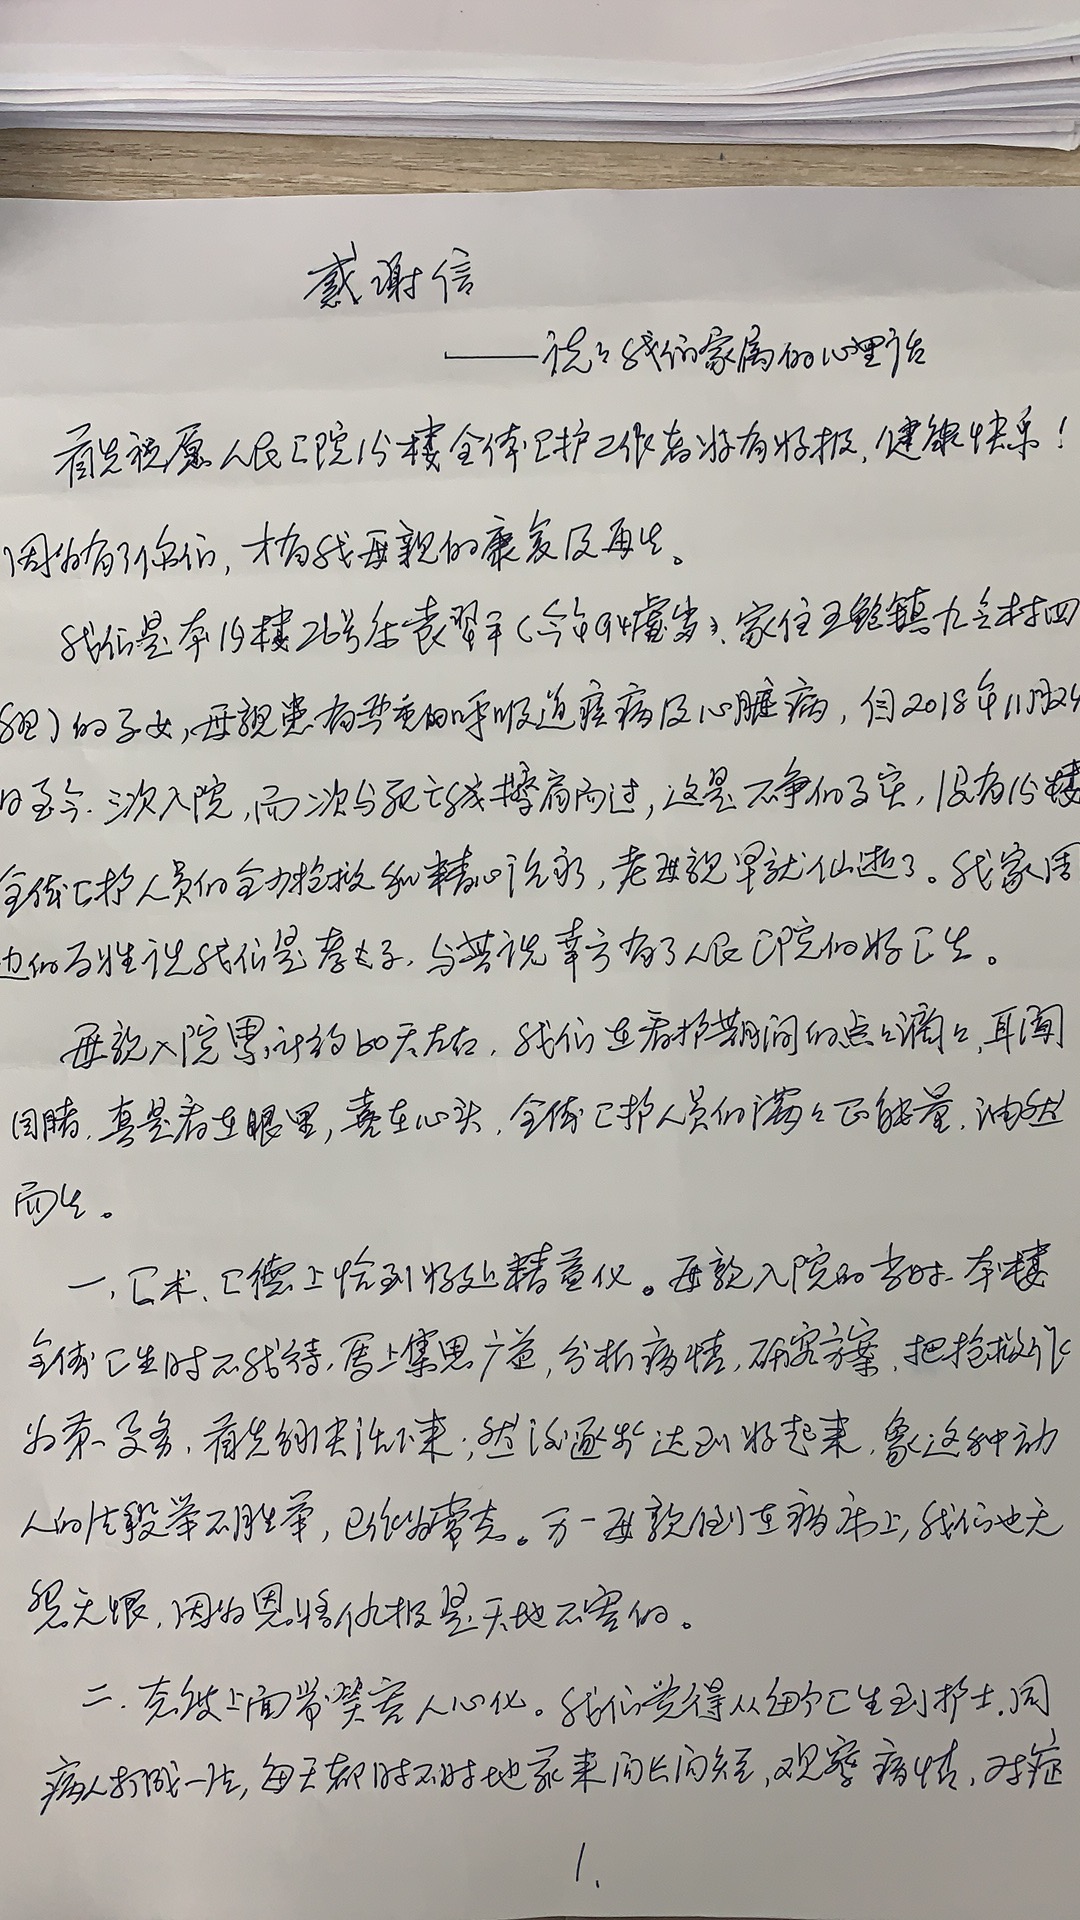 感谢信
——说说我们家属的心理话
首先祝愿人民匚院15楼全体匚护工作者好有好报，健康快乐！
因为有了你们，才有我母亲的康复及再生。
我们是本15楼26号床袁翠平（今年94虚岁、家住王鲍镇九三村四
组）的子女，母亲患有严重的呼吸道疾病及心脏病，自2018年11月24
日至今.三次入院，而次与死亡线擦肩而过，这是不争的事实，没有15楼
全体匚护人员的全力抢救和精心治疗，老母亲早就仙逝了。我家周
边的百姓说我们是孝子，与其说幸亏有了人民匚院的好匚生。
母亲入院累计约60天左右，我们在看护期间的点点滴滴，耳闻
目睹，真是看在眼里，喜在心头，全体匚护人员们满满正能量，油然
而生。
一，匚术、匚德上恰到好处精益化。母亲入院的当时，本楼
全体匚生时不我待，马上集思广益，分析病情，研究方案，把抢救作
为第一要务，首先细尖活下来，然后逐步达到好起来，象这种动
人的片段举不胜举，已作为常态。万一母亲倒在病床上，我们也无
怨无恨，因为恩将仇报是天地不容的。
二.态度上面带笑容人心化。我们觉得从每个匚生到护士，同
病人打成一片，每天都时不时地前来问长问短，观察病情，对症
1.